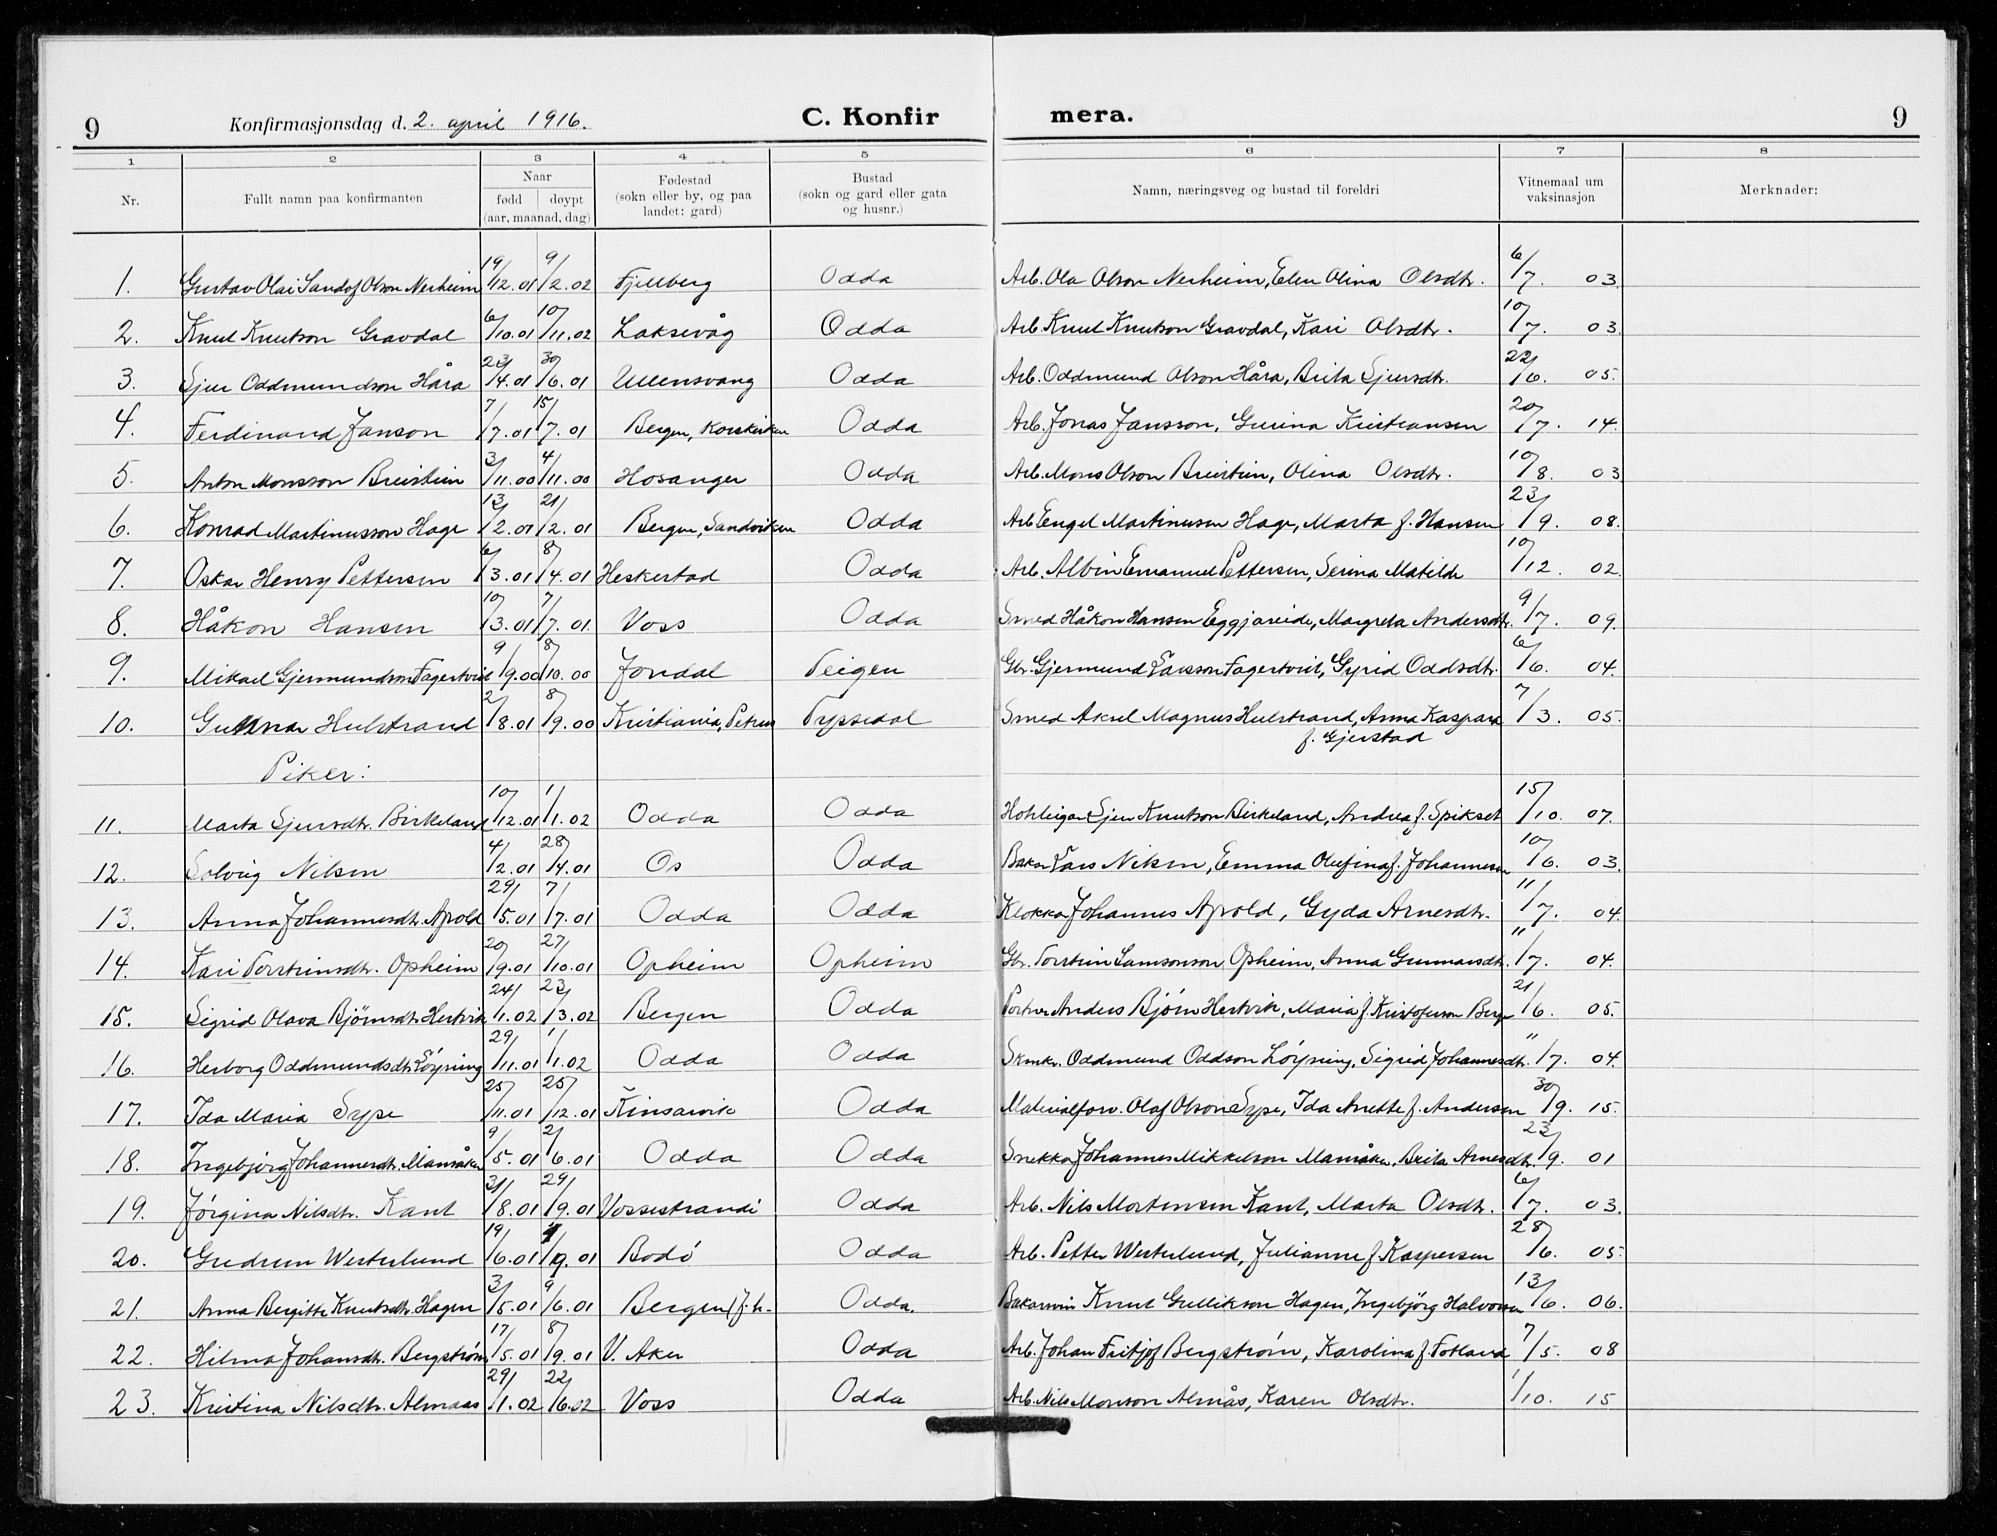 9 Konfirmasjonsdag d. 2. april 1916. C. Konfir mera. 9
1 2 3 4 5 6 7 8
Nr. Fullt namn paa konfirmanten Naar født døypt (aar, maanad, dag) Fødestad (sokn eller by, og paa landet: gard) Bustad (sokn og gard eller gata og husnr.) Namn, næringsveg og bustad til foreldri Vitnemaal um vaksinasjon Merknader:
1. Gustav Olai Sandof Olson Nerheim 19/12.01 9/2.02 Fjellberg Odda Arb. Ola Olson Nerheim, Elen Olina Olsdtr. 6/7. 03.
2. Knut Knutson Gravdal 6/10.01 10/11.02 Laksevåg Odda Arb. Knut Knutson Gravdal, Kari Olsdtr. 10/7. 03.
3. Sjur Oddmundson Håra 23/4.01 30/6.01 Ullensvang Odda Arb. Oddmund Olson Håra, Brita Sjursdtr. 22/6. 05.
4. Ferdinand Janson 7/7.01 15/7.01 Bergen, Korskirken Odda Arb. Jonas Jansson, Gurina Kristiansen 20/7. 14.
5. Anton Monsson Breistein 3/11.00 4/11.00 Hosanger Odda Arb. Mons Olson Breistein, Olina Olsdtr. 10/8. 03
6. Konrad Martinusson Hage 13/2.01 21/2.01 Bergen, Sandviken Odda Arb. Engel Martinusen Hage, Marta f. Hansen 23/9. 08.
7. Oskar Henry Pettersen 6/3.01 8/4.01 Heskestad Odda Arb. Albin Emanuel Pettersen, Serina Matilde 10/12. 02.
8. Håkon Hansen 10/3.01 7/7.01. Voss Odda Smed Håkon Hansen Eggjareide, Margreta Andersdtr. 9/7. 09.
9. Mikael Gjermundson Fagertvit 9/9.00 8/10.00 Jondal Teigen Gbr. Gjermund Larsson Fagertvit, Gyrid Oddsdtr. 6/6. 04.
10. Gunnar Hulstrand 2/8.01 8/9.00 Kristiania, Petrus Tyssedal Smed Aksel Magnus Hulstrand, Anna Kaspara 7/3. 05.
f. Gjerstad
Piker:
11. Marta Sjursdtr. Birkeland 10/12.01 1/1.02 Odda Odda Sjur Knutson Birkeland, Andrea f. Spikset 15/10. 07.
12. Solveig Nilsen 4/2.01 28/4.01 Os Odda Bakar Lars Nilsen, Emma Olufina f. Johannesen 10/6. 03.
13. Anna Johannesdtr. Apold 29/5.01 7/7.01 Odda Odda Klokkar Johannes Apold, Gyda Arnesdtr. 11/7. 04.
14. Kari Torsteinsdtr. Opheim 20/9.01 27/10.01 Opheim Opheim Gbr. Torstein Samsonson Opheim, Anna Gunnarsdtr. 11/7. 04.
15. Sigrid Olava Bjørnsdtr. Hertvik 24/1.02 23/3.02 Bergen Odda Portner Anders Bjørn Hertvik, Maria f. Kristoferson Berge 21/6. 05.
16. Herborg Oddmundsdtr. Løyning 29/11.01 1/1.02 Odda Odda Skmkr. Oddmund Oddson Løyning, Sigrid Johannesdtr. 11/7. 04.
17. Ida Maria Sype 25/11.01 25/12.01 Kinsarvik Odda Materialforv. Olaf Olson Sype, Ida Anette f. Andersen 30/9. 15.
18. Ingebjørg Johannesdtr. Mannsåker 9/5.01 2/6.01 Odda Odda Snekkar Johannes Mikkelson Mannsåker, Brita Arnesdtr. 23/9. 01
19. Jørgina Nilsdtr. Kant 31/8.01 29/9.01 Vossestrandi Odda Arb. Nils Mortensen Kant, Marta Olsdtr. 6/7. 03.
20. Gudrun Westerlund 19/6.01 1/9.01 Bodø Odda Arb. Petter Westerlund, Julianne f. Kaspersen 28/6. 05.
21. Anna Bergitte Knutsdtr. Hagen 3/5.01 9/6.01 Bergen, Odda. Bakarsvein Knut Gullikson Hagen, Ingebjørg Halvorsen 13/6. 06.
22. Hilma Johansdtr. Bergstrøm 17/5.01 8/9.01 V. Aker Odda Arb. Johan Fritjof Bergstrøm, Karolina f. Fotland 7/5. 08
23. Kristina Nilsdtr. Almaas 29/1.02 22/6.02 Voss Odda Arb. Nils Monson Almås, Karen Olsdtr. 1/10. 15